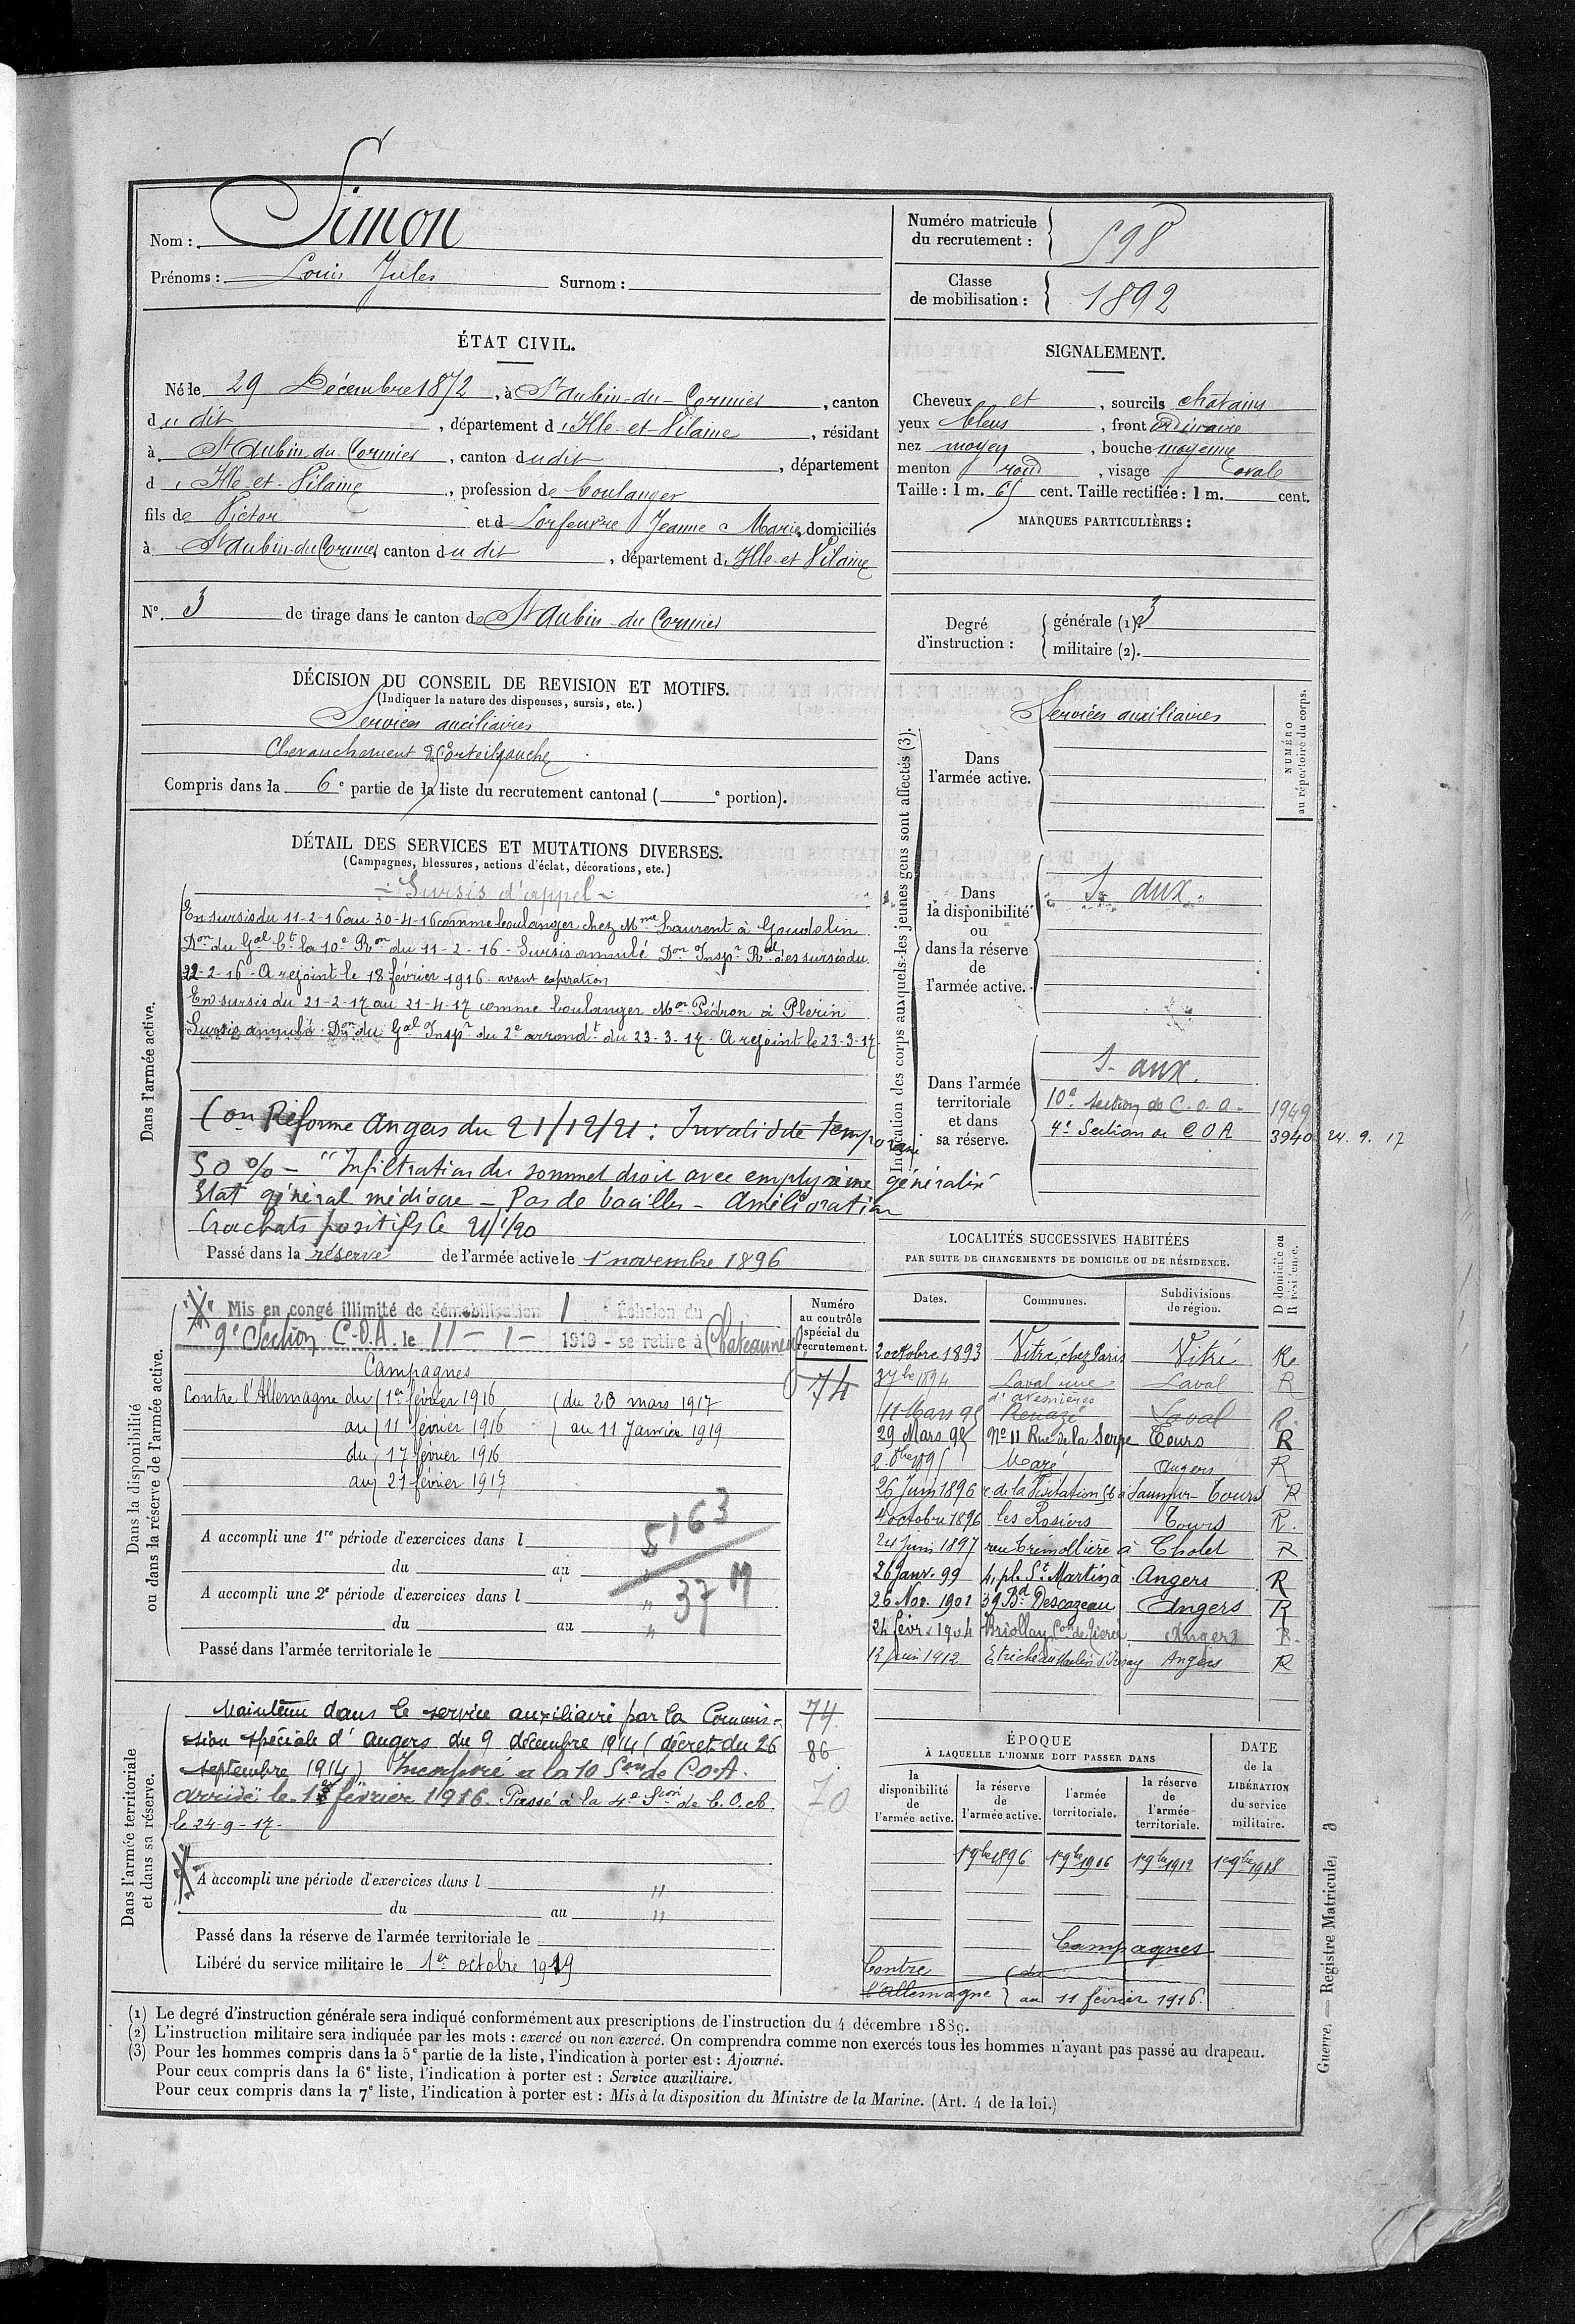 Nom : Simon
Prénoms : Louis Jules Surnom :
Numéro matricule
du recrutement : 598
Classe
de mobilisation : 1892
ÉTAT CIVIL.
Né le 29 Décembre 1872, à St Aubin-du-Cormier, canton
du dit, département d'Ille-et-Vilaine, résidant
à St Aubin du Cormier, canton du dit, département
d'Ille-et-Vilaine, profession de boulanger
fils de Victor et d Lorfeuvre Jeanne Marie, domiciliés
à St Aubin-du-Cormier canton du dit, département d'Ille et Vilaine
SIGNALEMENT.
Cheveux et, sourcils chatains
yeux bleus, front ordinaire
nez moyen, bouche moyenne
menton rond, visage ovale
Taille : 1 m. 65 cent. Taille rectifiée : 1 m. cent.
MARQUES PARTICULIÈRES :
N°. 3 de tirage dans le canton de St Aubin-du Cormier
Degré
d'instruction :
générale (1). 3
militaire (2).
DÉCISION DU CONSEIL DE REVISION ET MOTIFS.
(Indiquer la nature des dispenses, sursis, etc.)
Services auxiliaires
Chevauchement du 5e orteil gauche
Compris dans la 6e partie de la liste du recrutement cantonal ( e portion).
DÉTAIL DES SERVICES ET MUTATIONS DIVERSES.
(Campagnes, blessures, actions d'éclat, décorations, etc.)
Dans l'armée active.
Sursis d'appel
En sursis du 11-2-16 au 30-4-16 comme boulanger chez Mme Laurent à Goudelin
Don du Gal Ct la 10e Ron du 11-2-16 - Sursis annulé Don Inspr Ral des sursis du
22-2-16 - A rejoint le 18 février 1916 avant expiration
En sursis du 21-2-17 au 21-4-17 comme boulanger Mon Pédron à Plerin
Sursis annulé : Don du Gal Inspr du 2e arrondt du 23-3-17 - A rejoint le 23-3-17
Con Réforme Angers du 21/12/21 : Invalidité temporaire
50 % - "Infiltration du sommet droit avec emphysème généralisé
Etat général médiocre - Pas de bacilles - Amélioration
Crachats positifs le
Passé dans la réserve de l'armée active le 1er novembre 1896
Indication des corps auxquels les jeunes gens sont affectés (3).
NUMÉRO
au répertoire du corps.
Dans
l'armée active.
Services auxiliaires
Dans
la disponibilité
ou
dans la réserve
de
l'armée active.
S. aux.
Dans l'armée
territoriale
et dans
sa réserve.
S. aux.
10e Section de C.O.A. 1949
4e Section de C O A 3940 24. 9. 17
Dans la disponibilité
ou dans la réserve de l'armée active.
Numéro
au contrôle
spécial du
recrutement.
74
Mis en congé illimité de démobilisation 1 Echelon du
9e Section C.O.A. le 11 - 1 - 1919 - se retire à Chateauneuf
Campagnes
Contre l'Allemagne du 1er février 1916 (du 23 mars 1917
au 11 février 1916 ) au 11 Janvier 1919
du 17 février 1916
au 21 février 1917
A accompli une 1re période d'exercices dans l
du au
5163
37 M
A accompli une 2e période d'exercices dans l
du au
Passé dans l'armée territoriale le
LOCALITÉS SUCCESSIVES HABITÉES
PAR SUITE DE CHANGEMENTS DE DOMICILE OU DE RÉSIDENCE.
Dates. Communes. Subdivisions
de région.
D domicile ou
R résidence.
2 octobre 1893 Vitré, chez Paris Vitré Re
3 7bre 1894 Laval rue d'avesnières Laval R
11 Mars 95 Renazé Laval R.
29 Mars 95 N° 11 Rue de la Serpe Tours R
1895 Mazé Angers R
26 Juin 1896 r. de la Visitation à Saumur- Tours R
4 octobre 1896 les Rosiers Tours R.
24 juin 1897 rue Trémollière à Cholet R
26 Janv. 99 4, pl. St Martin à Angers R
26 Nov. 1901 39 Bd Descazeau Angers R
24 févr. 1904 Briollay Con de Tiercé Angers R.
13 juin 1912 Etriché au Moulin d'Ivray Angers R
Dans l'armée territoriale
et dans sa réserve.
Maintenu dans le service auxiliaire par la Commis-
sion spéciale d'Angers du 9 décembre 1914 (décret du 26
septembre 1914) Incorporé à la 10 Son de C.O.A.
arrivé le 1er février 1916. Passé à la 4e Sion de C.O.A.
le 24-9-17.
74
86
70
A accompli une période d'exercices dans l
du au
Passé dans la réserve de l'armée territoriale le
Libéré du service militaire le 1er octobre 1919
ÉPOQUE
À LAQUELLE L'HOMME DOIT PASSER DANS
la
disponibilité
de
l'armée active.
la réserve
de
l'armée active.
l'armée
territoriale.
la réserve
de
l'armée
territoriale.
DATE
de la
LIBÉRATION
du service
militaire.
1er 9bre 1896 1er 9bre 1906 1er 9bre 1912 1er 9bre 1918
Campagnes
Contre
l'Allemagne
du
au 11 février 1916.
(1) Le degré d'instruction générale sera indiqué conformément aux prescriptions de l'instruction du 4 décembre 1889.
(2) L'instruction militaire sera indiquée par les mots : exercé ou non exercé. On comprendra comme non exercés tous les hommes n'ayant pas passé au drapeau.
(3) Pour les hommes compris dans la 5e partie de la liste, l'indication à porter est : Ajourné.
Pour ceux compris dans la 6e liste, l'indication à porter est : Service auxiliaire.
Pour ceux compris dans la 7e liste, l'indication à porter est : Mis à la disposition du Ministre de la Marine. (Art. 4 de la loi.)
Guerre. — Registre Matricule. 3